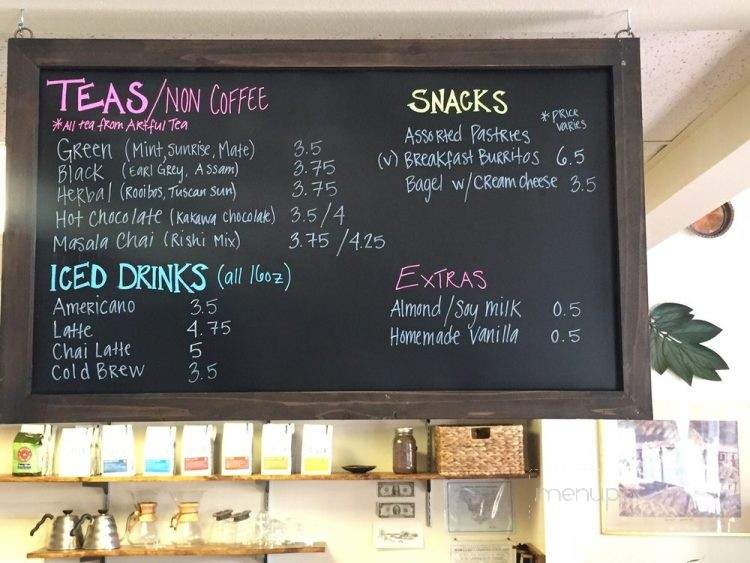 TEAS/NON COFFEE
*All tea from Artful Tea
Green (Mint, Sunrise, Mate) 3.5
Black (Earl Grey, Assam) 3.75
Herbal (Rooibos, Tuscan Sun) 3.75
Hot Chocolate (Kakawa chocolate) 3.5/4
Masala Chai (Rishi Mix) 3.75/4.25
ICED DRINKS (all 16oz)
Americano 3.5
Latte 4.75
Chai Latte 5
Cold Brew 3.5
SNACKS
*PRICE VARIES
Assorted Pastries
(V) Breakfast Burritos 6.5
Bagel w/Cream Cheese 3.5
EXTRAS
Almond/Soy milk 0.5
Homemade Vanilla 0.5
menup